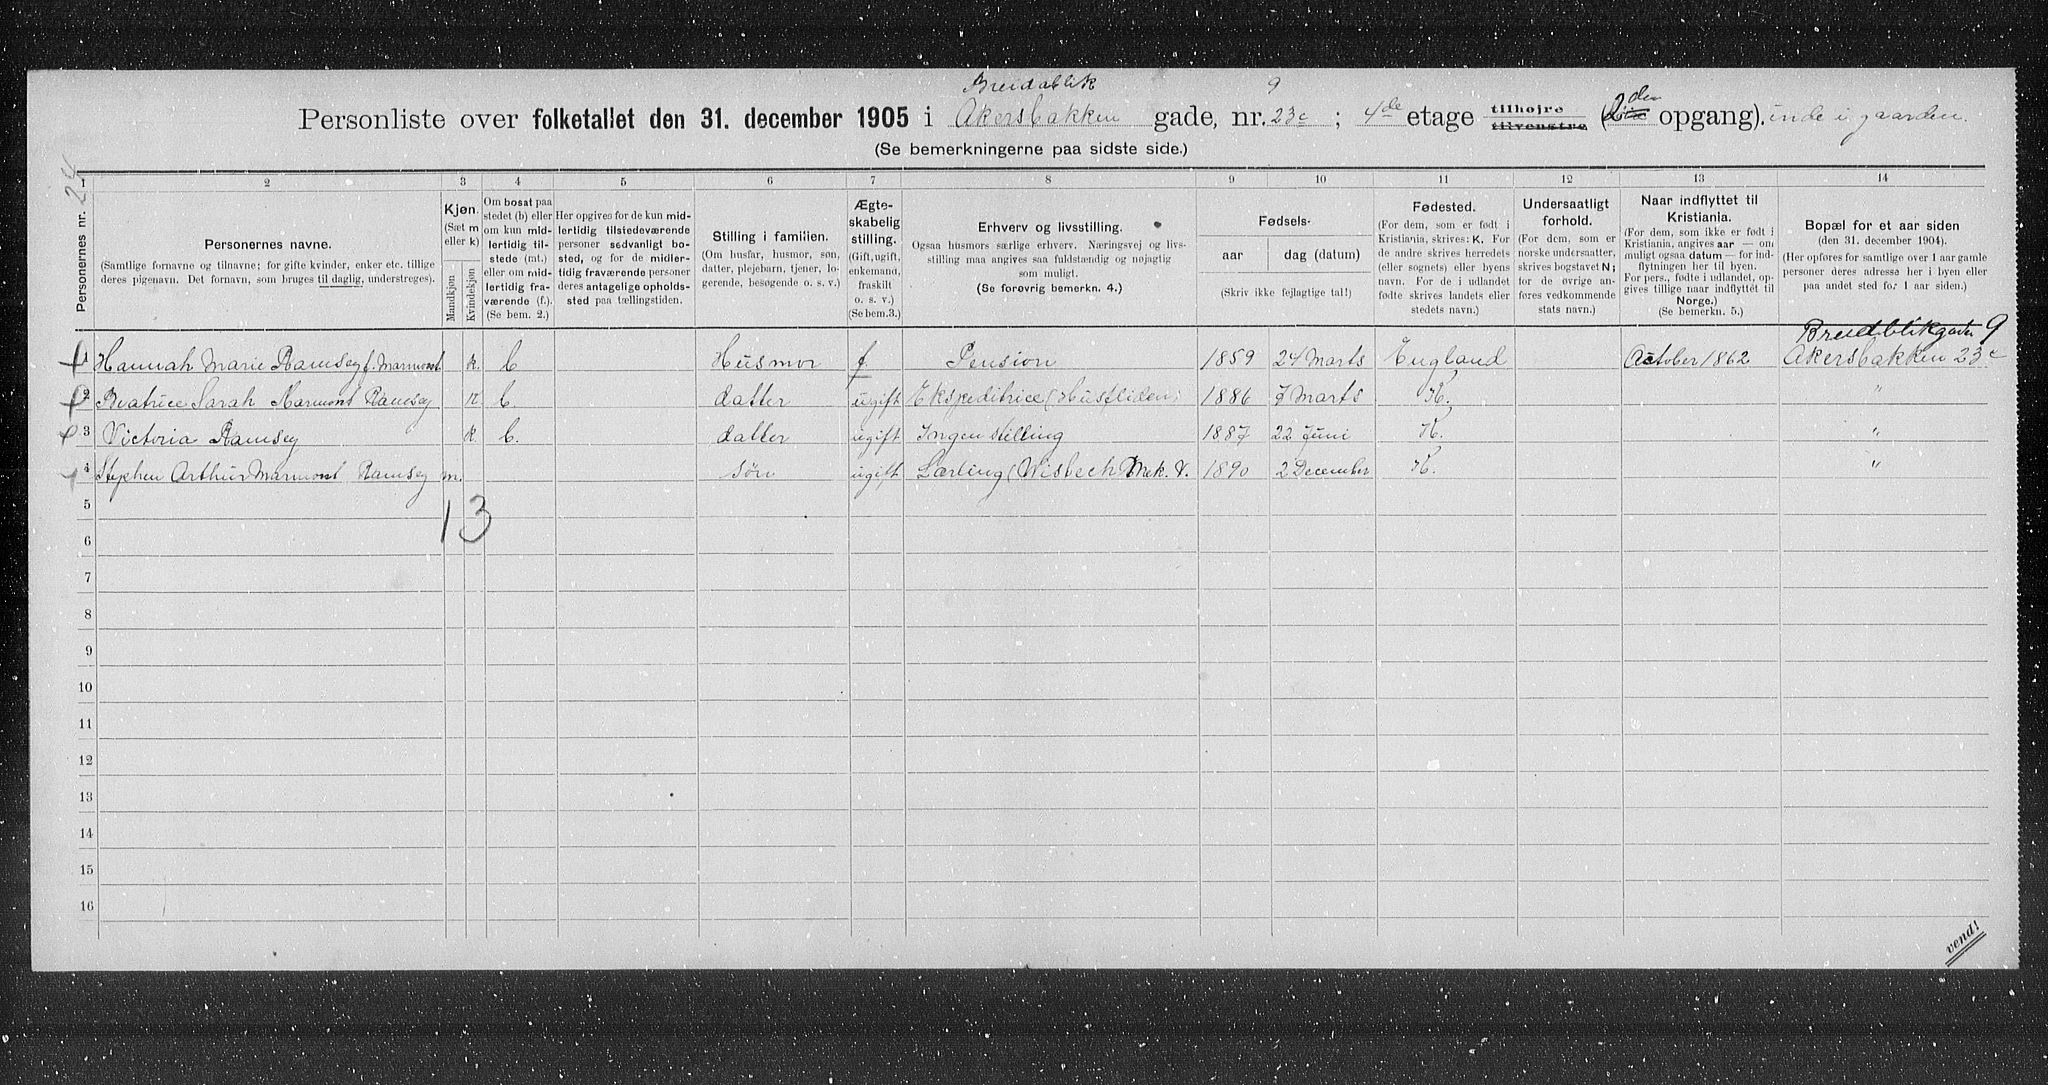 Breidablik 9
Personliste over folketallet den 31. december 1905 i Akersbakken gade, nr. 23c ; 4de etage tilhøjre tilvenstre (2den opgang). inde i gaarden.
(Se bemerkningerne paa sidste side.)
1 2 3 4 5 6 7 8 9 10 11 12 13 14
Personernes nr.
Personernes navne.
(Samtlige fornavne og tilnavne; for gifte kvinder, enker etc. tillige
deres pigenavn. Det fornavn, som bruges til daglig, understreges).
Kjøn.
(Sæt m
eller k)
Mandkjøn
Kvindekjøn
Om bosat paa
stedet (b) eller
om kun mid-
lertidig til-
stede (mt.)
eller om mid-
lertidig fra-
værende (f.).
(Se bem. 2.)
Her opgives for de kun mid-
lertidig tilstedeværende
personer sedvanligt bo-
sted, og for de midler-
tidig fraværende personer
deres antagelige opholds-
sted paa tællingstiden.
Stilling i familien.
(Om husfar, husmor, søn,
datter, plejebarn, tjener, lo-
gerende, besøgende o. s. v.)
Ægte-
skabelig
stilling.
(Gift, ugift,
enkemand,
fraskilt
o. s. v.)
(Se bem.3.)
Erhverv og livsstilling.
Ogsaa husmors særlige erhverv. Næringsvej og livs-
stilling maa angives saa fuldstændig og nøjagtig
som muligt.
(Se forøvrig bemerkn. 4.)
Fødsels-
aar dag (datum)
(Skriv ikke fejlagtige tal!)
Fødested.
(For dem, som er født i
Kristiania, skrives: K. For
de andre skrives herredets
(eller sognets) eller byens
navn. For de i udlandet
fødte skrives landets eller
stedets navn.)
Undersaatligt
forhold.
(For dem, som er
norske undersaatter,
skrives bogstavet N;
for de øvrige an-
føres vedkommende
stats navn.)
Naar indflyttet til
Kristiania.
(For dem, som ikke er født i
Kristiania, angives aar — om
muligt ogsaa datum — for ind-
flytningen her til byen.
For pers., fødte i udlandet, op-
gives tillige naar indflyttet til
Norge.)
(Se bemerkn. 5.)
Bopæl for et aar siden
(den 31. december 1904).
(Her opføres for samtlige over 1 aar gamle
personer deres adresse her i byen eller
paa andet sted for 1 aar siden.)
9
1 Hannah Marie Ramsey f. Marmont k. b Husmor f Pension 1859 24 Marts England October 1862 Akersbakken 23c
2 Beatrice Sarah Marmont Ramsey k b. datter ugift Ekspeditrice (Husfliden) 1886 7 Marts K. "
3 Victoria Ramsey k. b. datter ugift Ingen stilling 1887 22 Juni K. "
4 Stephen Arthur Marmont Ramsey m. søn ugift Lærling (Wisbech Mek. V. 1890 2 December K. "
1 3
5
6
7
8
9
10
11
12
13
14
15
16
vend!